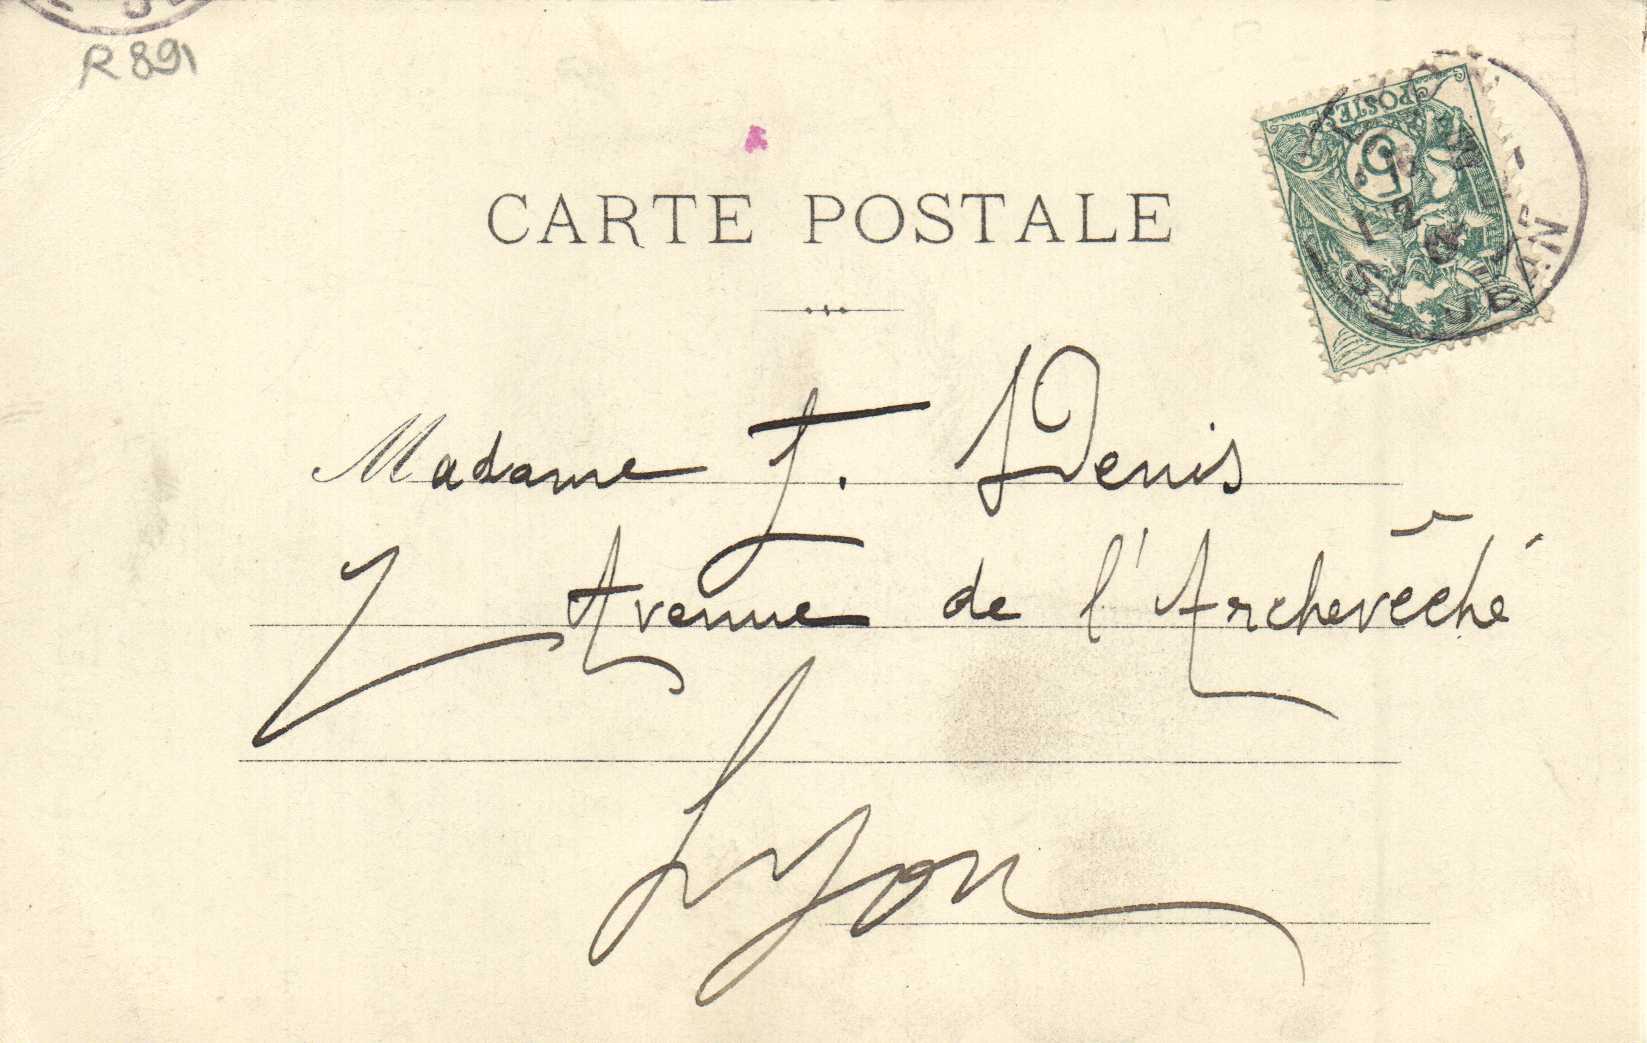 R 891
POSTES
5
CARTE POSTALE
JEAN
Madame F. Denis
7 Avenue de l'Archevêché
Lyon